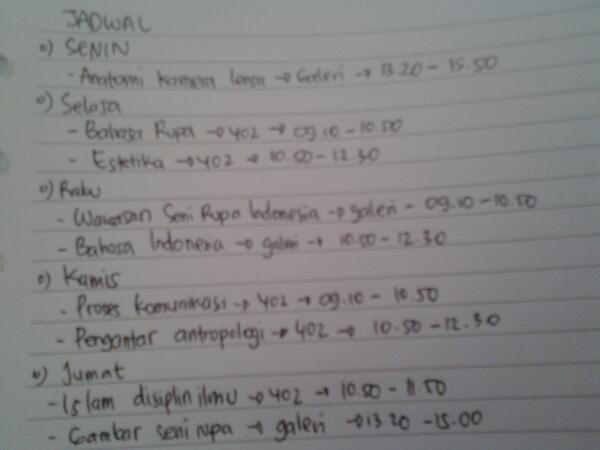 JADWAL
o) SENIN
- Anatomi kamera lensa → Galeri → 13.20 - 15.50
o) Selasa
- Bahasa Rupa → 402 → 09.10 - 10.50
- Estetika → 402 → 10.50 - 12.30
o) Rabu
- Wawasan Seni Rupa Indonesia → galeri - 09.10 - 10.50
- Bahasa Indonesia → galeri → 10.50 - 12.30
o) Kamis
- Proses komunikasi → 402 → 09.10 - 10.50
- Pengantar antropologi → 402 → 10.50 - 12.30
o) Jumat
- Islam disiplin ilmu → 402 → 10.50 - 11.50
- Gambar seni rupa → galeri → 13.20 - 15.00